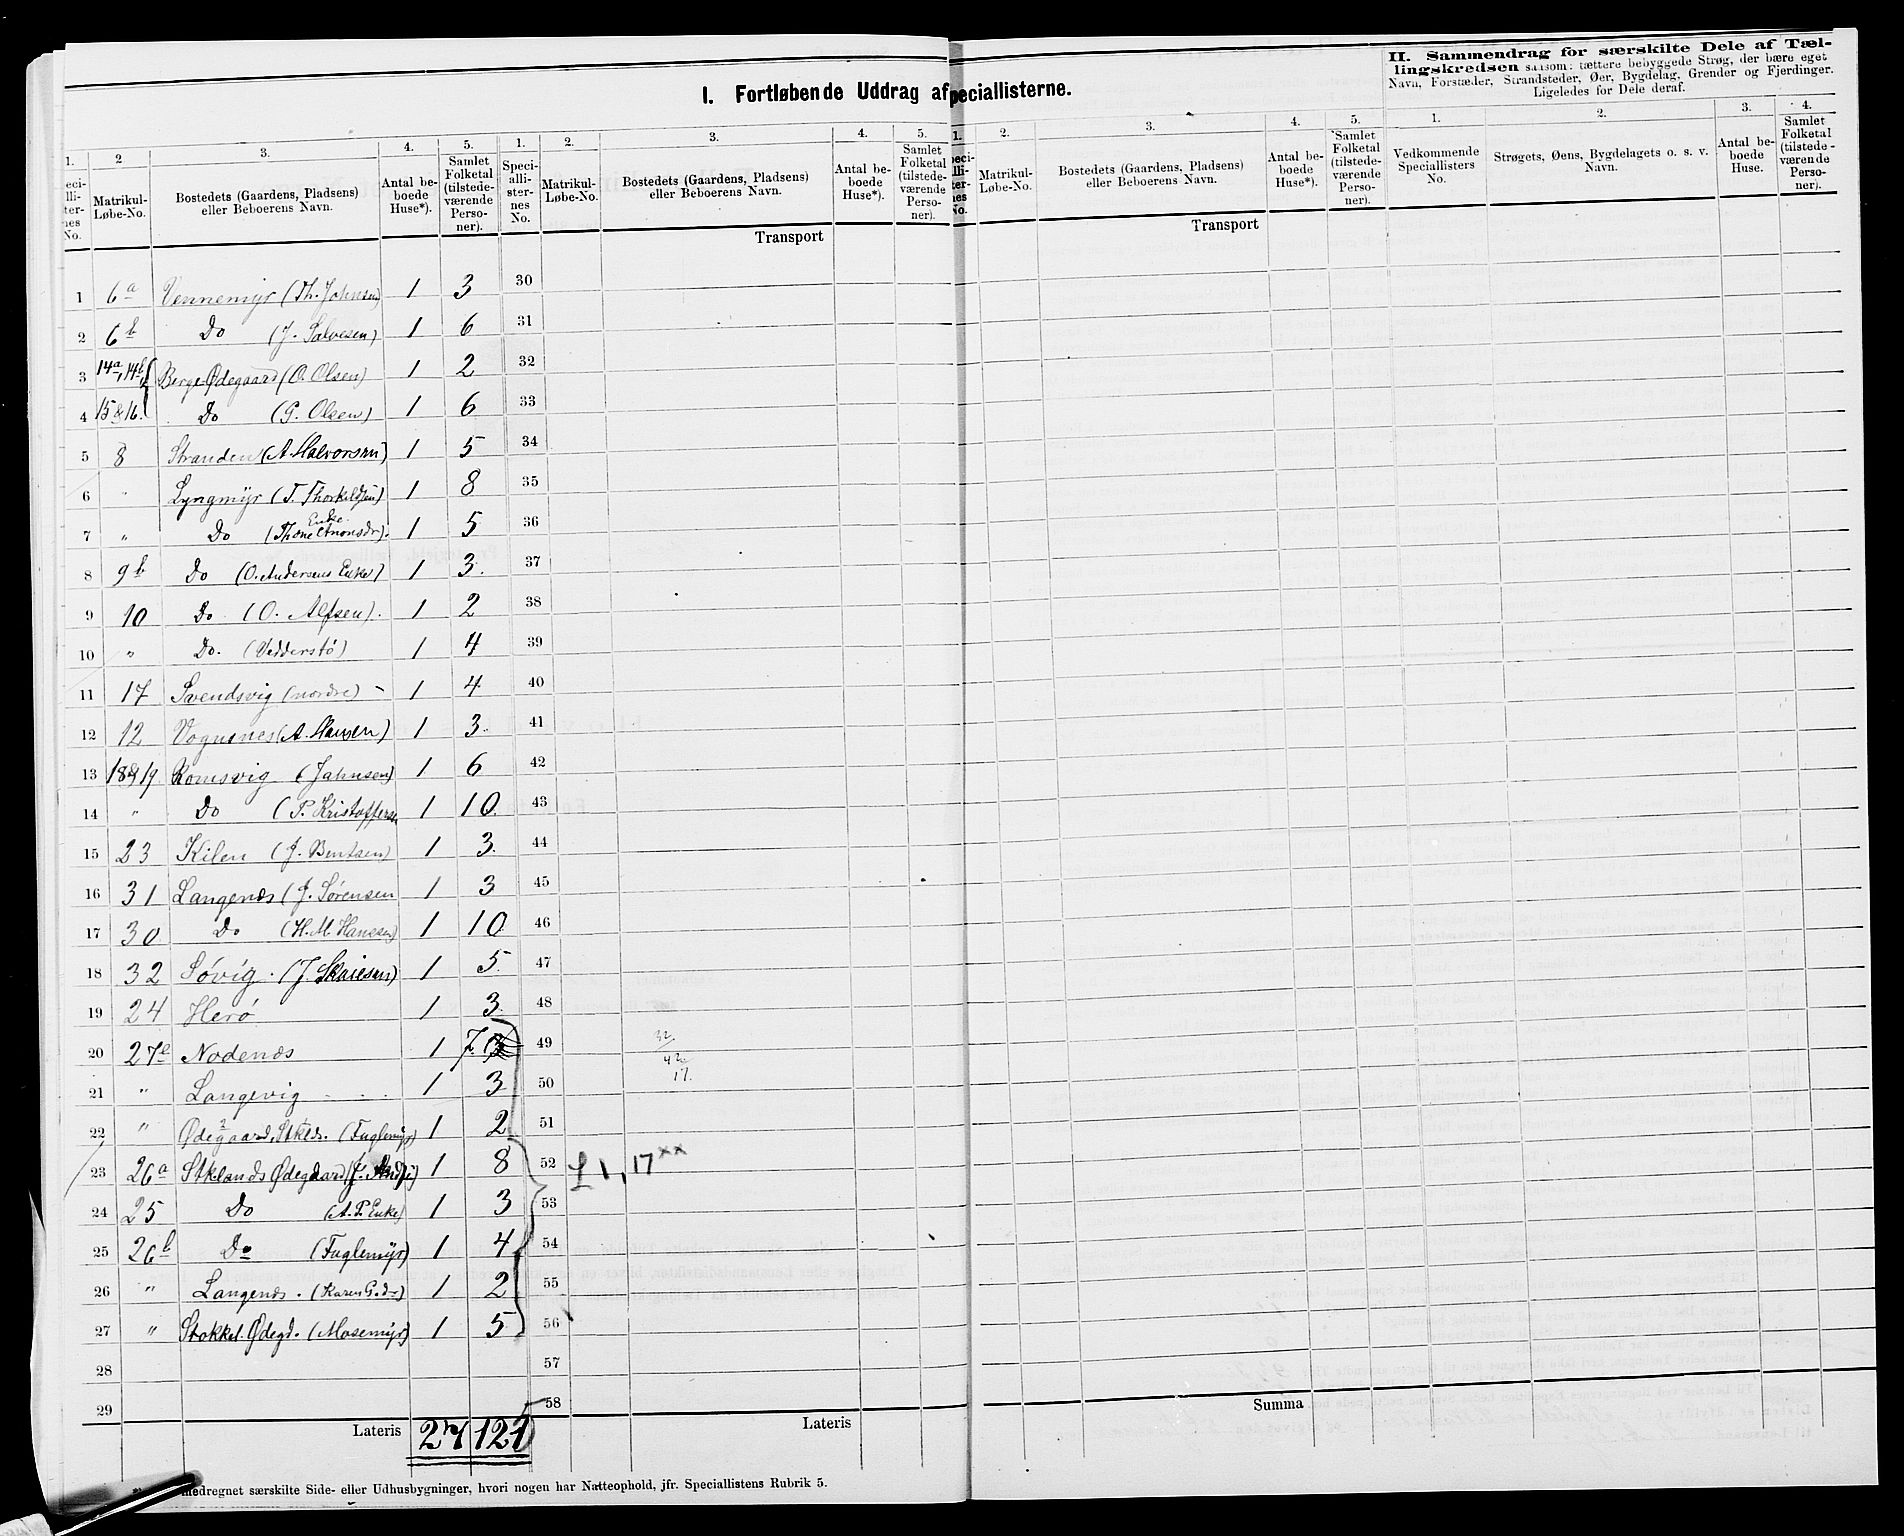 I. Fortløbende Uddrag af
peciallisterne.
II. Sammendrag for særskilte Dele af Tæl-
lingskredsen saasom: tættere bebyggede Strøg, der bære eget
Navn, Forstæder, Strandsteder, Øer, Bygdelag, Grender og Fjerdinger.
Ligeledes for Dele deraf.
1. 2 3. 4. 5. 1. 2. 3. 4. 5.
eci-
lli-
ter-
nes
No.
Matrikul-
Løbe-No.
Bostedets (Gaardens, Pladsens)
eller Beboerens Navn.
Antal be-
boede
Huse*).
Samlet
Folketal
(tilstede-
værende
Perso-
ner).
Speci-
alli-
ster-
nes
No.
Matrikul-
Løbe-No.
Bostedets (Gaardens, Pladsens)
eller Beboerens Navn.
Antal be-
boede
Huse*).
Samlet
Folketal
(tilstede-
værende
Perso-
ner).
Transport
1. 2. 3. 4. 5. 1. 2. 3. 4.
peci-
lli-
ter-
nes
No.
Matrikul-
Løbe-No.
Bostedets (Gaardens, Pladsens)
eller Beboerens Navn.
Antal be-
boede
Huse*).
Samlet
Folketal
(tilstede-
værende
Perso-
ner).
Vedkommende
Speciallisters
No.
Strøgets, Øens, Bygdelagets o. s. v.
Navn.
Antal be-
boede
Huse.
Samlet
Folketal
(tilstede-
værende
Perso-
ner).
Transport
1 6a Vennemyr (Th. Johnsen) 1 3 30
2 6b Do (J. Salvesen) 1 6 31
3 14a, 14b Berge Ødegaard (O. Olsen) 1 2 32
4 15 & 16. Do (G. Olsen) 1 6 33
5 8 Stranden (A. Halvorsen) 1 5 34
6 " Lyngmyr (T. Thorkildsen) 1 8 35
7 " Do (Thone Enke) 1 5 36
8 9b Do (O. Andersens Enke) 1 3. 37
9 10 Do (O. Alfsen). 1 2 38
10 " Do. (Vedderstø) 1 4 39
11 17 Svendsvig (nordre) - 1 4 40
12 12 Vognsnes (A. Hansen) 1 3. 41
13 18&19. Romsvig (Jahnsen) 1 6 42
14 " Do (P. Kristoffersen 1 10. 43
15 23 Kilen (J. Bentsen) 1 3. 44
16 31 Langenes (J. Sørensen 1 3 45
17 30 Do (H. M. Hansen) 1 10 46
18 32 Søvig. (J. ) 1 5. 47
19 24 Herø 1 3. 48
20 27e Nodenes 1 7. 49
32
42
17.
21 " Langevig 1 3 50
22 " Ødegaard, Stkls. (Fuglemyr) 1 2 51
23 26a Stklands Ødegaard (J. ) 1 8 52 £ 1, 17xx
24 25 Do (A. P. Enke) 1 3 53
25 26b Do (Fuglemyr) 1 4 54
26 " Langenes. (Karen G.dr) 1 2 55
27 " Stokkel. Ødegd. (Mosemyr) 1 5 56
28 57
29 58
Lateris 27 121
Lateris
Summa
medregnet særskilte Side- eller Udhusbygninger, hvori nogen har Natteophold, jfr. Speciallistens Rubrik 5.